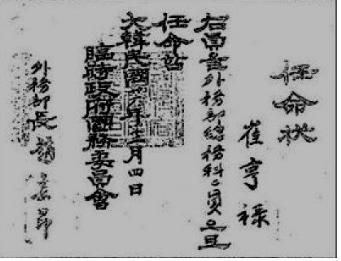 任命狀
崔亨祿
右員을外務部總務科員으로
任命함
大韓民國 六年 月四日
臨時政府國務委員會
外務部長趙素昂